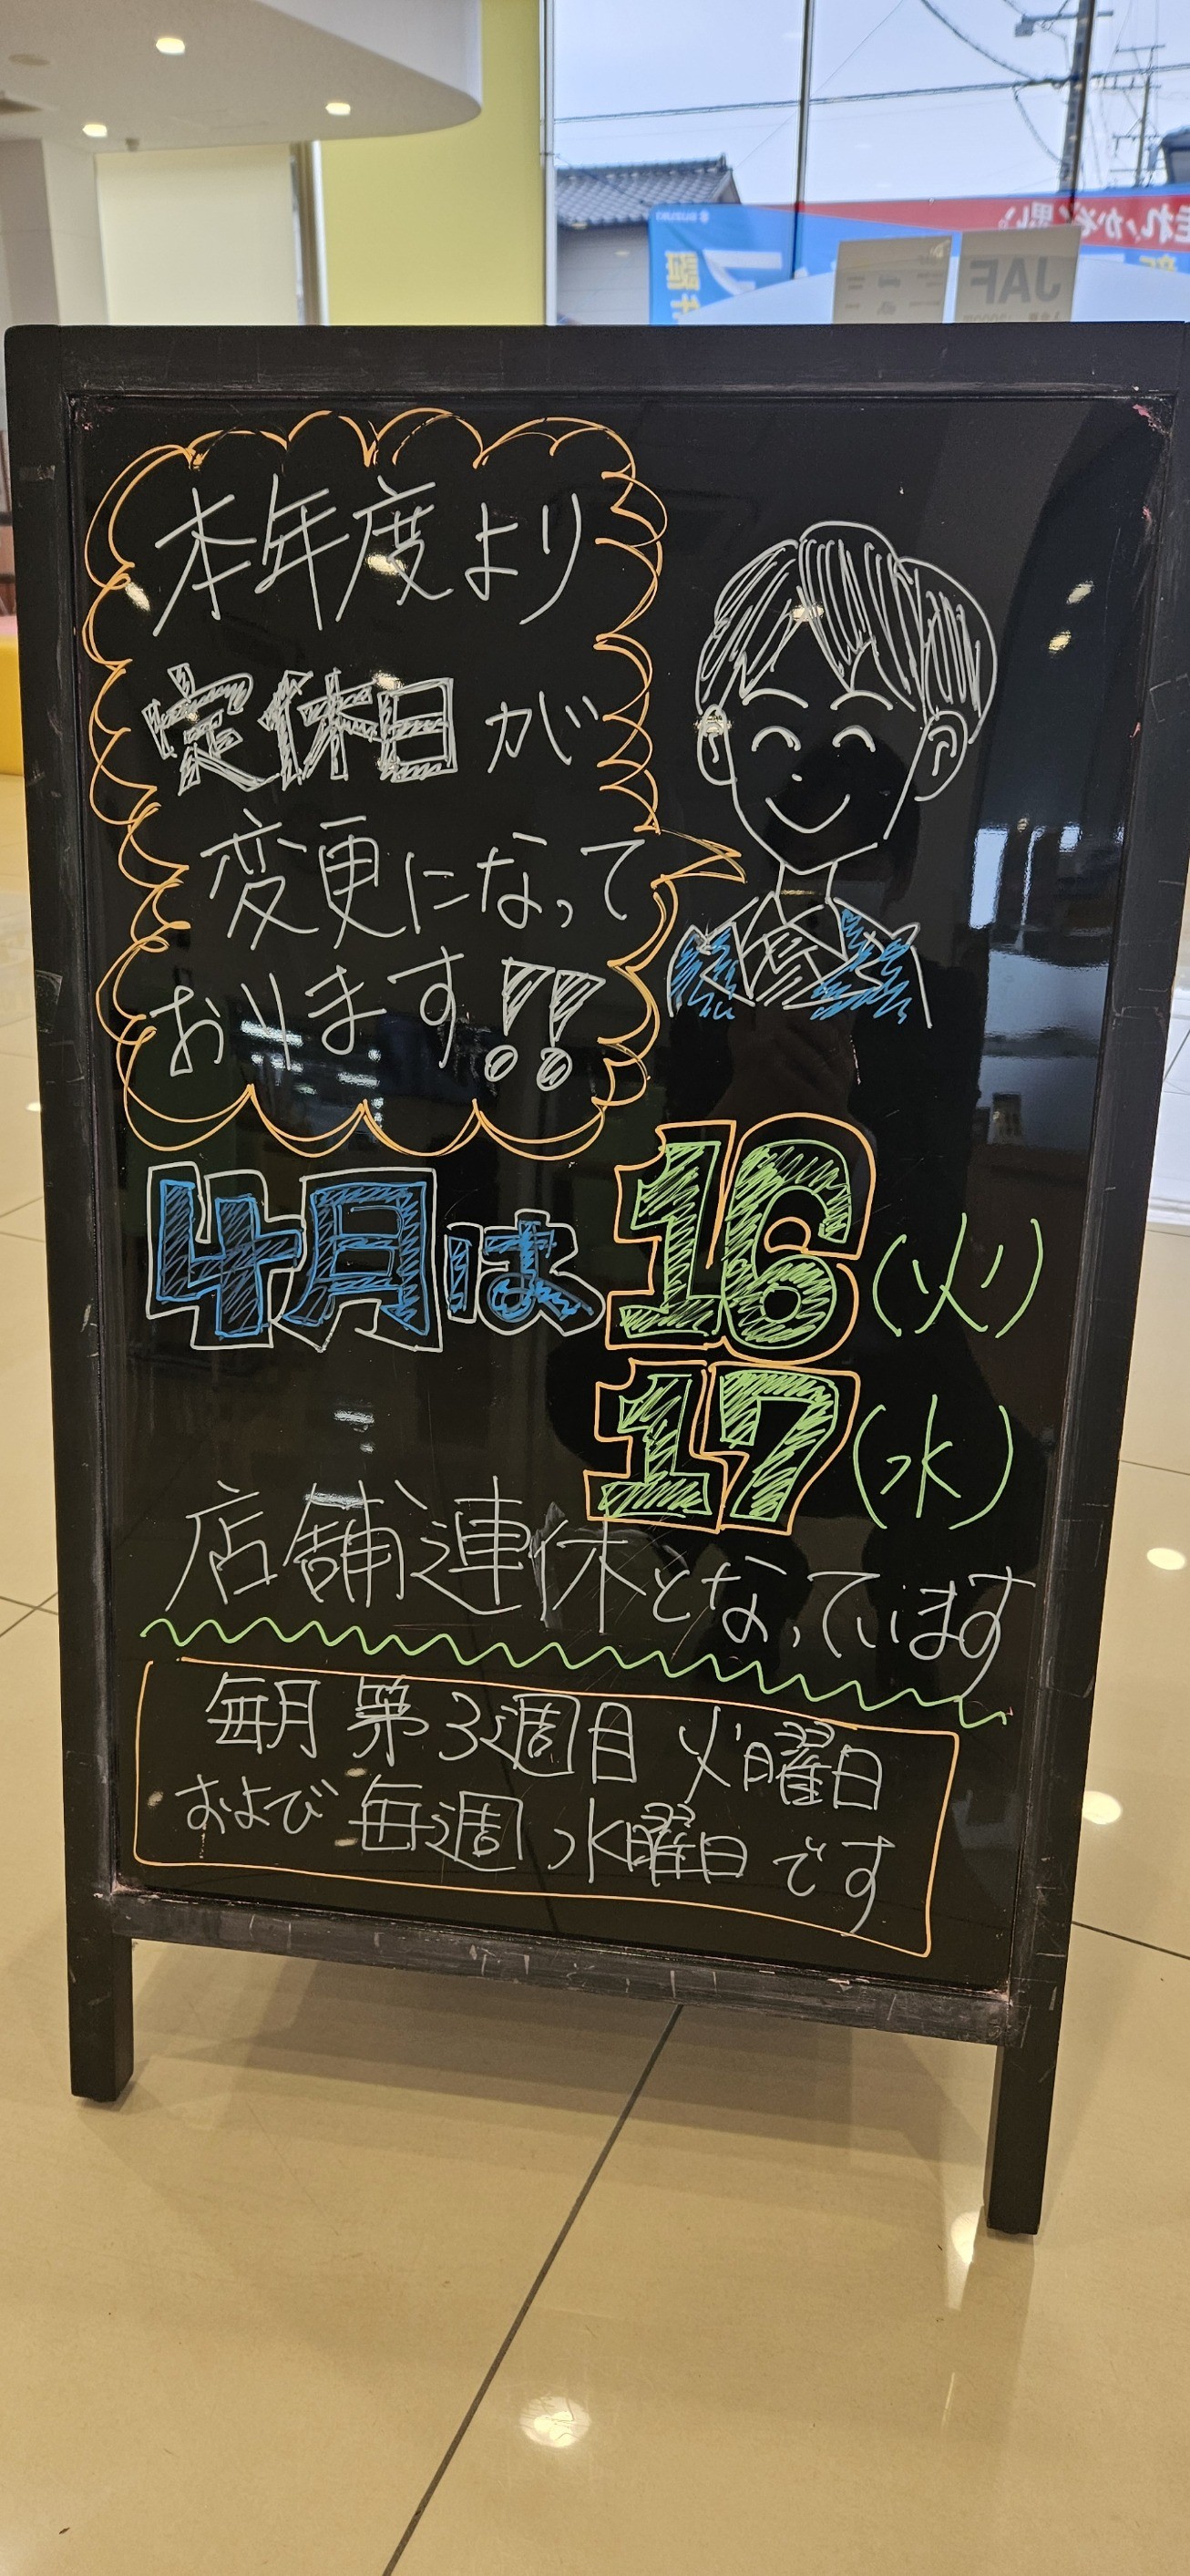 SUZUKI
走れ!かぞく思い。
JAF
本年度より
定休日が
変更になって
おります!!
4月は 16(火)
17(水)
店舗連休となっています
毎月 第3週目 火曜日
および 毎週 水曜日 です